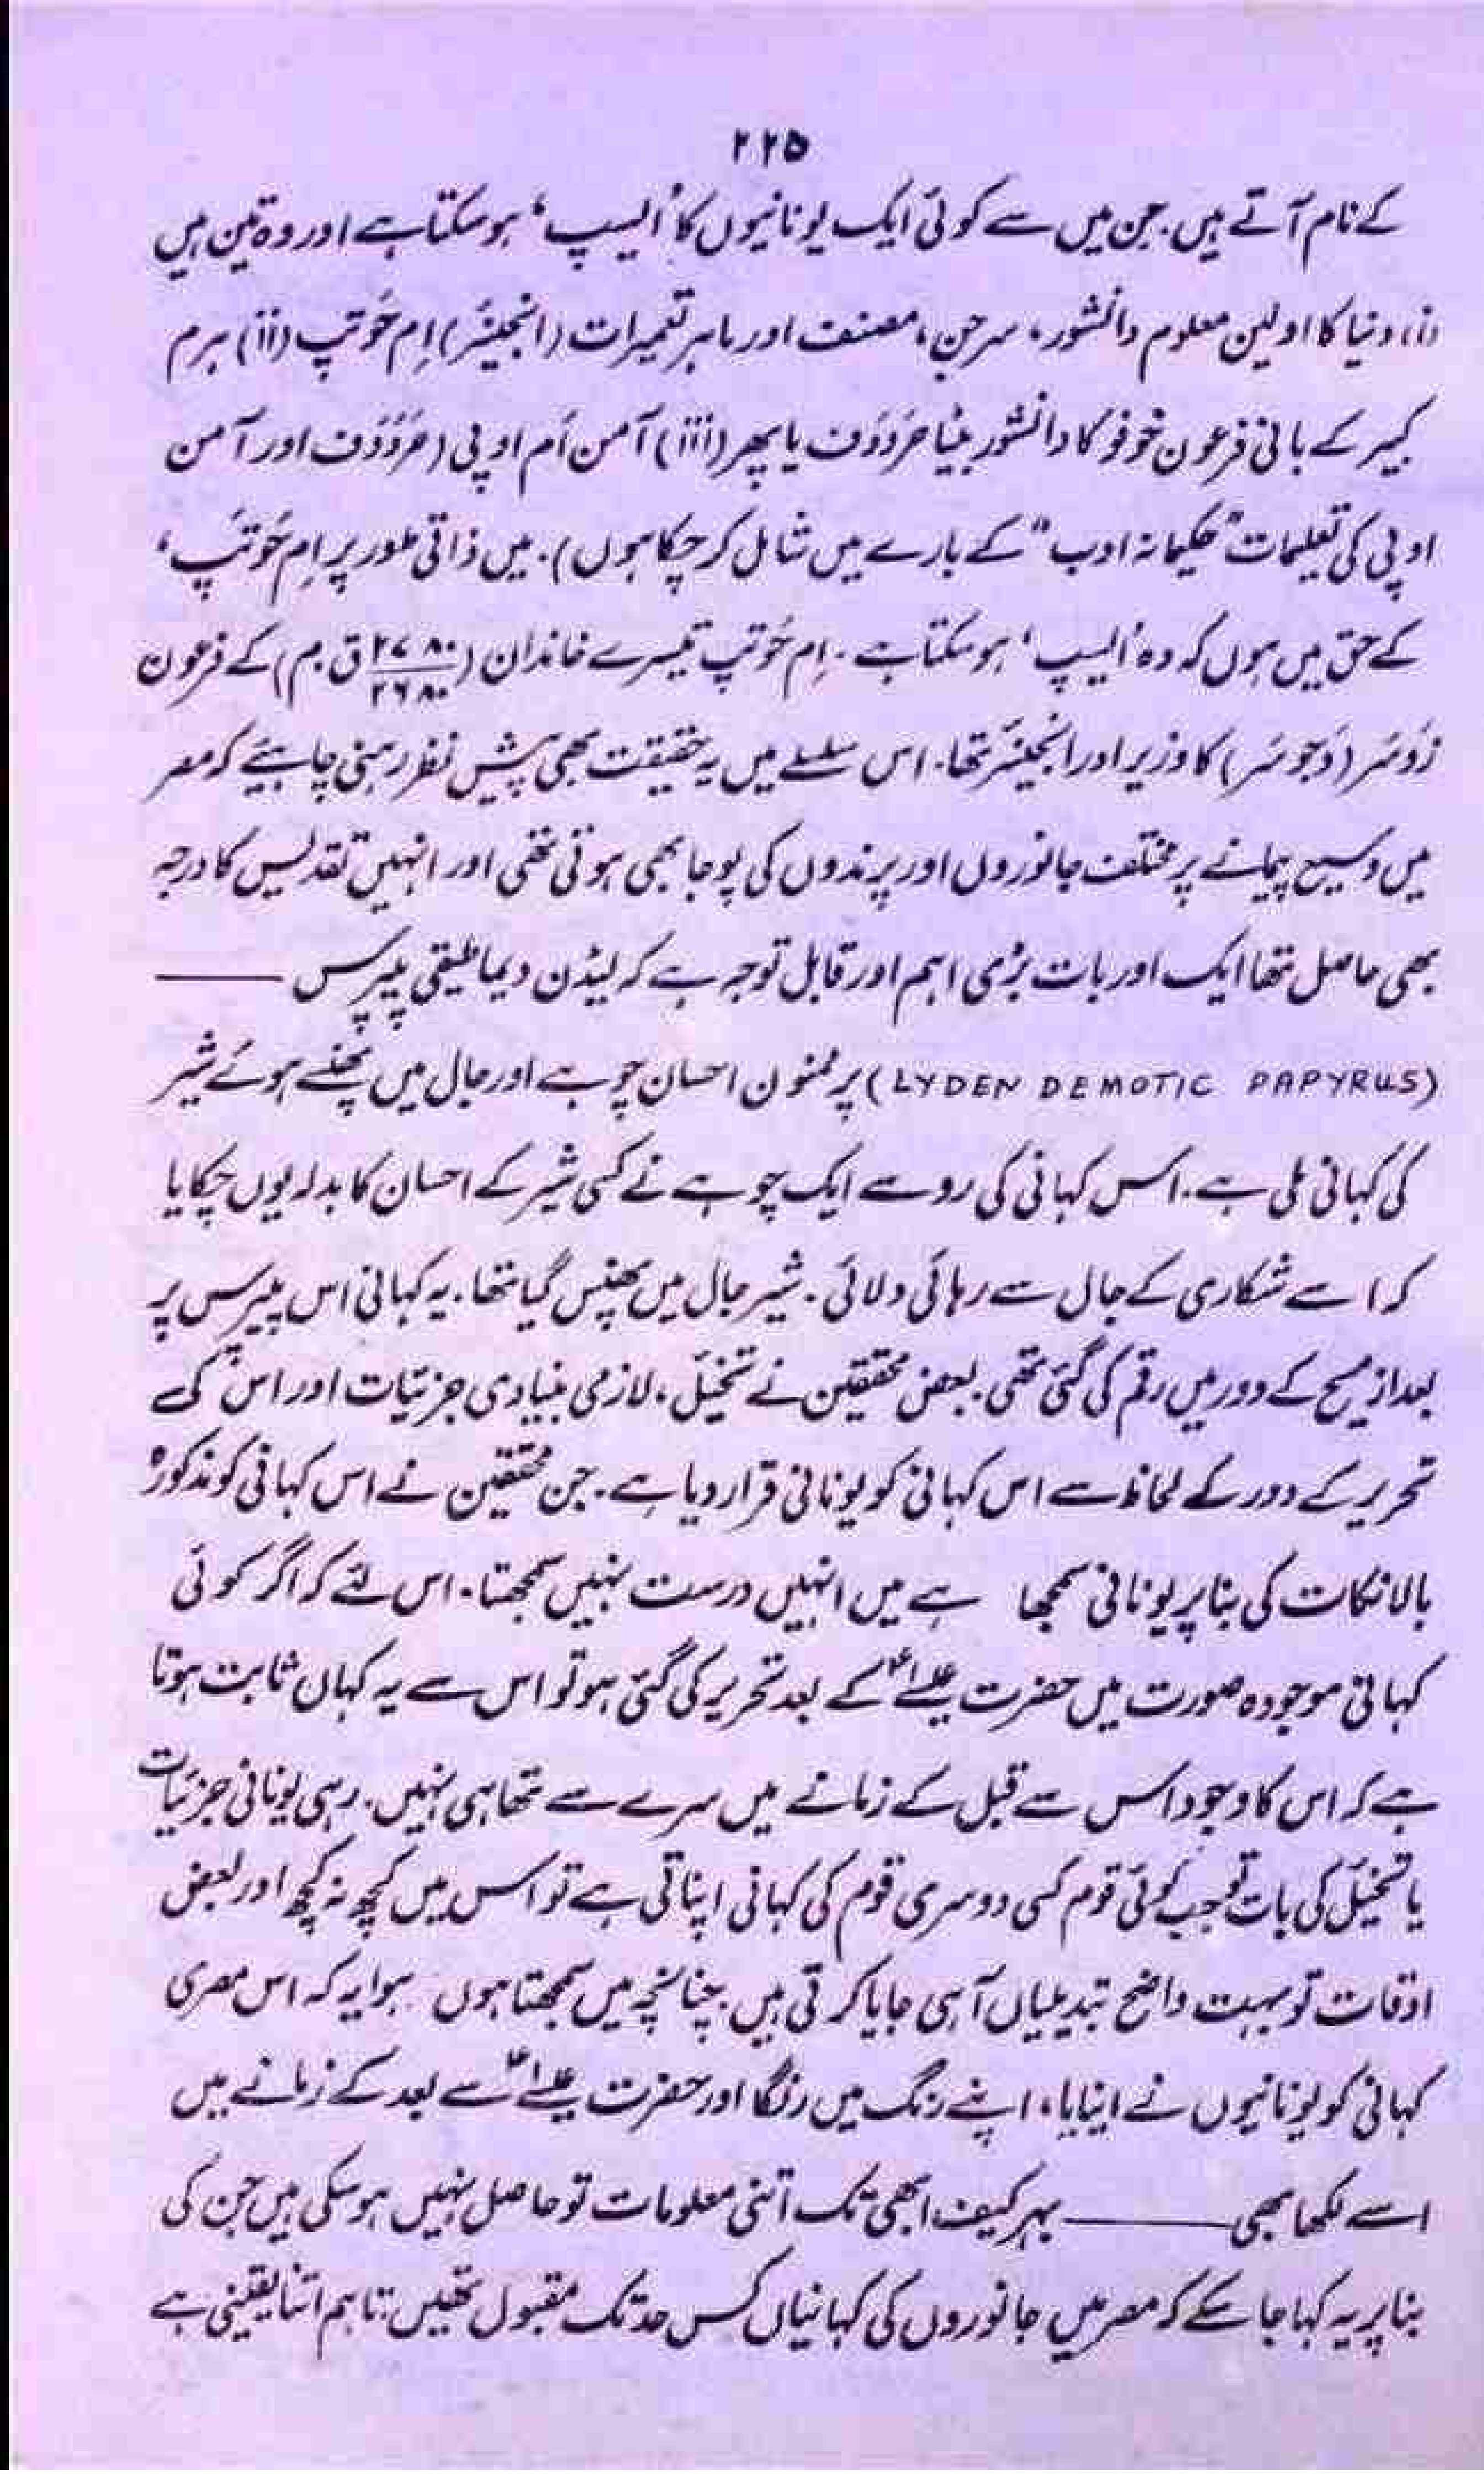 ۲۲۵
کے نام آتے ہیں. جن میں سے کوئی ایک یونانیوں کا 'اُلیسپ' ہو سکتا ہے اور وہ تین ہیں
(i) دنیا کا اولین معلوم دانشور، سرجن، مصنف اور ماہر تعمیرات (انجینئر) اِم حُوتپ (ii) ہرم
کبیر کے بانی فرعون خوفو کا دانشور بیٹا حَردَدف یا پھر (iii) آمن اَم اوپی (حَردَدَف اور آمن
اوپی کی تعلیمات "حکیمانہ ادب" کے بارے میں شامل کر چکا ہوں). میں ذاتی طور پر اِم حُوتَپ،
کے حق میں ہوں کہ وہ 'اُلیسپ' ہو سکتا ہے. اِم حُوتپ تیسرے خاندان (۲۷۸۰/۲۶۸۰ ق.م) کے فرعون
زُوسَر (دَجوسَر) کا وزیر اور انجینئر تھا. اس سلسلے میں یہ حقیقت بھی پیشِ نظر رہنی چاہیئے کہ مصر
میں وسیع پیمانے پر مختلف جانوروں اور پرندوں کی پوجا بھی ہوتی تھی اور انہیں تقدیس کا درجہ
بھی حاصل تھا ایک اور بات بڑی اہم اور قابل توجہ ہے کہ لیڈن دیماطیقی پیپرس ——
(LYDEN DEMOTIC PAPYRUS) پر ممنون احسان چوہے اور جال میں پھنسے ہوئے شیر
کی کہانی ملی ہے. اس کہانی کی رو سے ایک چوہے نے کسی شیر کے احسان کا بدلہ یوں چکایا
کہ اسے شکاری کے جال سے رہائی دلائی. شیر جال میں پھنس گیا تھا. یہ کہانی اس پیپرس پر
بعد از مسیح کے دور میں رقم کی گئی تھی. بعض محققین نے تخیّل، لازمی بنیادی جزئیات اور اس کے
تحریر کے دور کے لحاظ سے اس کہانی کو یونانی قرار دیا ہے. جن محققین نے اس کہانی کو مذکورہ
بالا نکات کی بنا پر یونانی سمجھا ہے میں انہیں درست نہیں سمجھتا. اس لئے کہ اگر کوئی
کہانی موجودہ صورت میں حضرت عیسیٰؑ کے بعد تحریر کی گئی ہو تو اس سے یہ کہاں ثابت ہوتا
ہے کہ اس کا وجود اس سے قبل کے زمانے میں سرے سے تھا ہی نہیں. رہی یونانی جزئیات
یا تخیّل کی بات تو جب کوئی قوم کسی دوسری قوم کی کہانی اپناتی ہے تو اس میں کچھ نہ کچھ اور بعض
اوقات تو بہت واضح تبدیلیاں آ ہی جایا کرتی ہیں. چنانچہ میں سمجھتا ہوں ہوا یہ کہ اس مصری
کہانی کو یونانیوں نے اپنایا، اپنے رنگ میں رنگا اور حضرت عیسیٰؑ سے بعد کے زمانے میں
اسے لکھا بھی —— بہر کیف ابھی تک اتنی معلومات تو حاصل نہیں ہو سکی ہیں جن کی
بنا پر یہ کہا جا سکے کہ مصر میں جانوروں کی کہانیاں کس حد تک مقبول تھیں. تاہم اتنا یقینی ہے